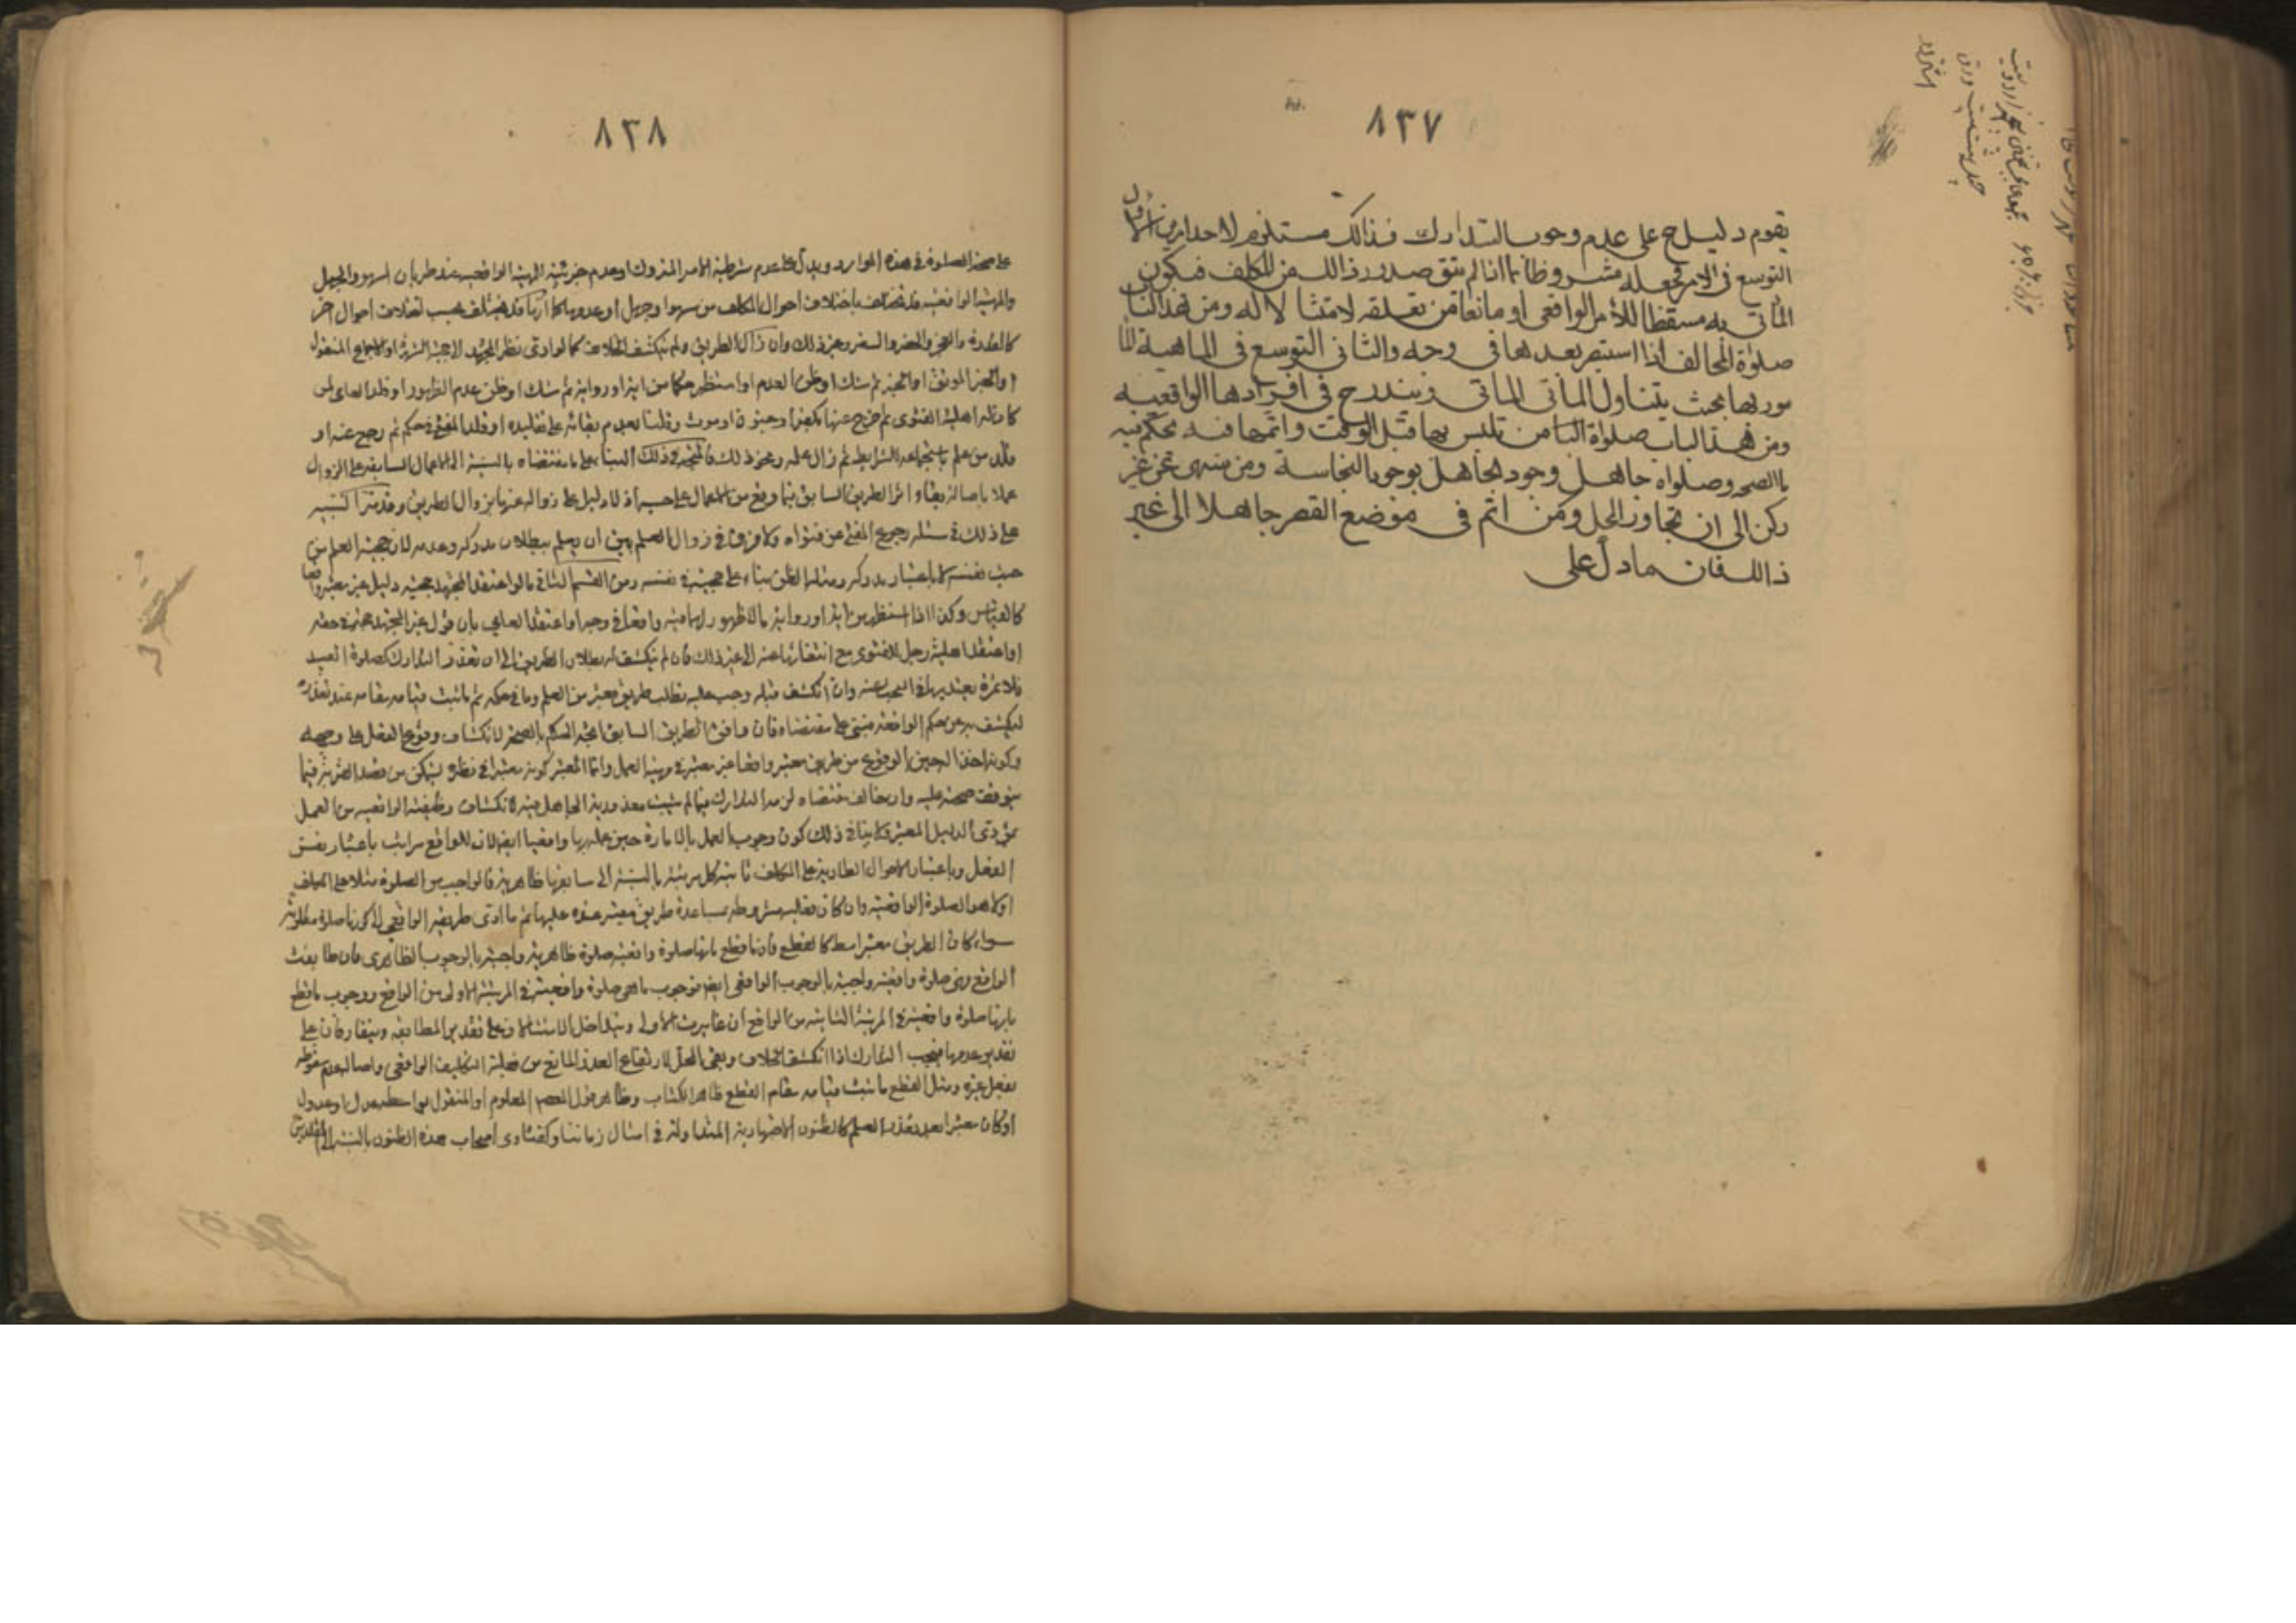 ٨٣٧
يقوم دليل ح على عدم وجوب التدارك فذالك مستلزم لاحد امرين الأول
التوسع في الامر بجعله مشروطا بما اذا لم يتق صدور ذالك من المكلف فيكون
المأتي به مسقطا للأمر الواقعي أو مانعا من تعلقه لامتثالا له ومن هذا الباب
صلوة المخالف اذا استبصر بعدها في وجه والثاني التوسع في الماهية الما
مور بها بحيث يتناول المأتي المأتي ويندرج في افرادها الواقعيه
ومن هذا الباب صلوة الناس تلبس بها قبل الوقت واتمها فيه بحكم فيه
باالصحه وصلواة جاهل وجود لجاهل بوجوب النجاسة ومن منهى عن غير
ركن الى ان تجاوز المحل ومن اتم في موضع القصر جاهلا الى غير
ذالك فان مادل على
٨٣٨
على صحة الصلوة في هذه الموارد ويدل على عدم شرطية الامر المتروك او عدم جزئيته للهيئة الواقعية عند طريان السهو والجهل
والهيئة الواقعية قد تختلف باختلاف احوال المكلف من سهو او جهل او عدمهما كما انها قد تختلف بحسب اختلاف احوال اخر
كالقدرة والعجز والحضر والسفر وغير ذلك وان زال الطريق ولم ينكشف الخلاف كما لو ادى نظر المجتهد الى حجية الشهرة او الاجماع المنقول
او الخبر الموثق او الخبر ثم شك او ظن العدم او استظهر حكما من اية او رواية ثم شك او ظن عدم الظهور او قلد العامي لمن
كان له اهلية الفتوى ثم خرج عنها بكفر او جنون او موت وقلنا بعدم بقائه على تقليده او قلد المفتي في حكم ثم رجع عنه او
قلد من علم باستجماعه الشرايط ثم زال علمه ونحو ذلك فالمتجه في ذلك البناء على مقتضاه بالنسبة الى الاعمال السابقة على الزوال
عملا باصالة بقاء اثر الطريق السابق فيما وقع من الاعمال على حسبه اذ لا دليل على زواله عنها بزوال الطريق وقد مر التنبيه
على ذلك في مسئلة رجوع المفتي عن فتواه ولا فرق في زوال العلم بين ان يعلم ببطلان مدركه وعدمه لان حجية العلم من
حيث نفسه لا باعتبار مدركه ومثله الظن بناء على حجيته في نفسه ومن القسم الثاني ما لو اعتقد المجتهد حجية دليل غير معتبر واقعا
كالقياس وكذا اذا استظهر من اية او رواية ما لا ظهور لها فيه واقعا في وجه او اعتقد العامي بان قول غير المجتهد حجة في حقه
او اعتقد اهلية رجل للفتوى مع انتفائها عنه الى غير ذلك فان لم ينكشف له بطلان الطريق الى ان تعذر التدارك كصلوة العيد
فلا ثمرة يعتد بها في البحث عنه وان انكشف قبله وجب عليه طلب طريق معتبر من العلم وما في حكمه ثم ما ثبت قيامه مقامه عند تعذره
ليكشف به عن حكم الواقعة فيبني على مقتضاه فان وافق الطريق السابق اتجه الحكم بالصحة لانكشاف وقوع الفعل على وجهه
وكونه اخذا لحين الوقوع من طريق معتبر واقعا غير معتبر في مهية العمل وانما المعتبر كونه معتبرا في نظره ليتمكن من قصد القربة فيما
يتوقف صحته عليه وان خالف مقتضاه لزمه التدارك فيما لم يثبت معذورية الجاهل فيه لانكشاف وظيفته الواقعيه من العمل
بمؤدى الدليل المعتبر ولا ينافي ذلك كون وجوب العمل بالامارة حين عمله بها واقعيا ايضا لان للواقع مراتب باعتبار نفس
الفعل وباعتبار الاحوال الطارية على المكلف
او لا هو الصلوة الواقعية وان كان فعليه مشروطه بمساعدة طريق معتبر عنده عليها ثم ما ادى طريقه الواقعي الى كونها صلوة مطلوبة
سواء كان الطريق معتبرا مطلقا كالقطع فان ما قطع بانها صلوة واقعية صلوة ظاهرية واجبة بالوجوب الظاهري فان طابقت
الواقع فهي صلوة واقعية واجبة بالوجوب الواقعي ايضا فوجوب ما هي صلوة واقعية في المرتبة الاولى من الواقع ووجوب ما قطع
بانها صلوة واقعية في المرتبة الثانية من الواقع ان غايرت الاولى ويتداخل الامتثالان على تقدير المطابقه ويتفارقان على
تقدير عدمها فيجب التدارك اذا انكشف الخلاف وبقي المحل لارتفاع العذر المانع من فعلية التكليف الواقعي واصالة عدم سقوطه
بفعل غيره ومثل القطع ما ثبت قيامه مقام القطع ظاهر الكتاب وظاهر قول المعصوم المعلوم او المنقول بواسطه عدل او عدول
او كان معتبرا بعد تعذر العلم كالظنون الاجتهادية المتداولة في امثال زماننا وكفتاوى اصحاب هذه الظنون بالنسبة الى المقلدين